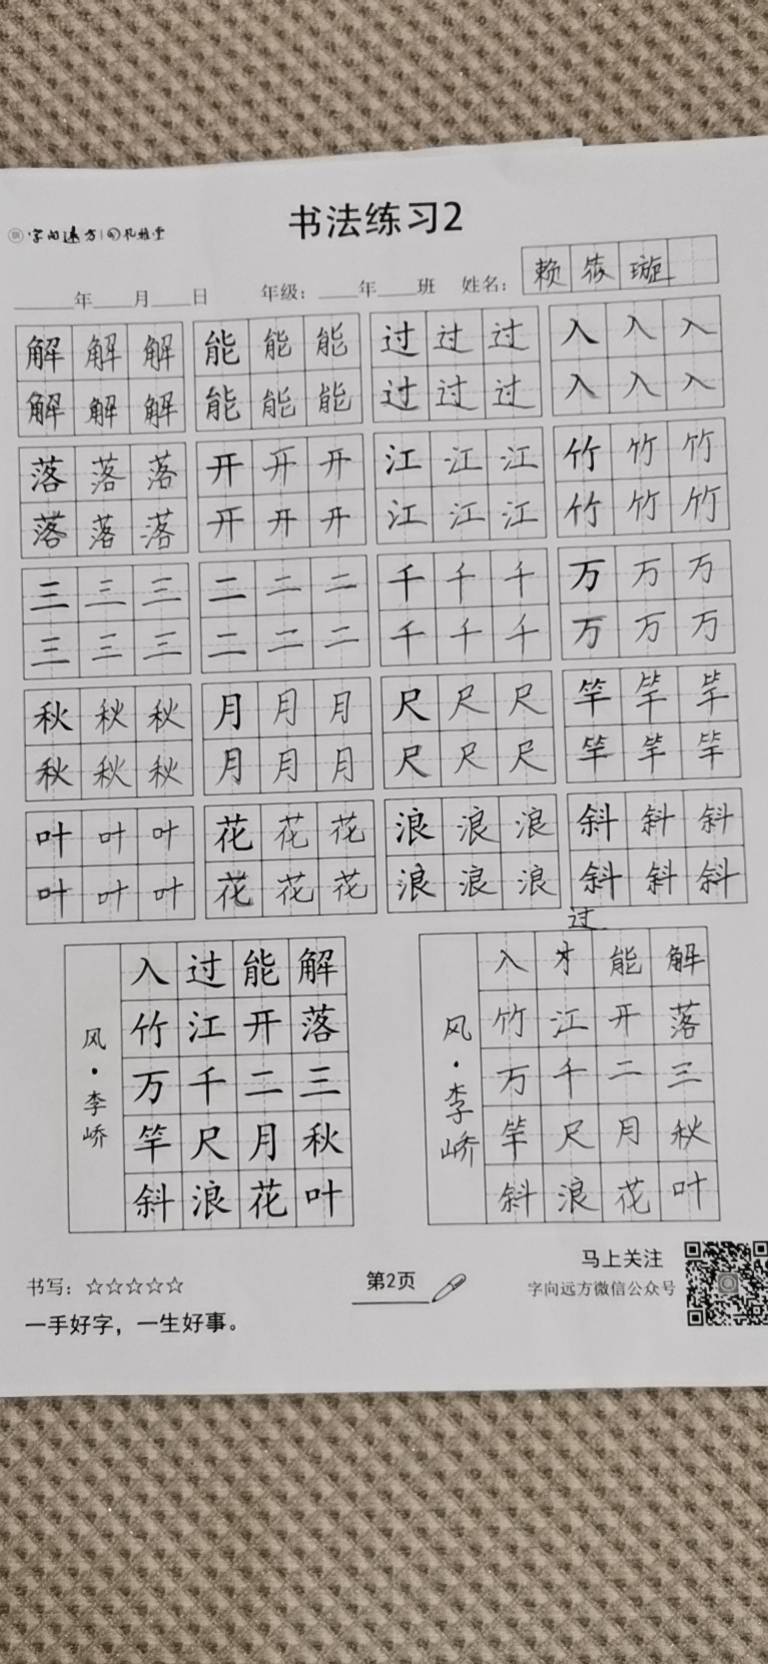 书法练习2
字向远方
年 月 日 年级: 年 班 姓名: 赖 璇
解 解 解 能 能 能 过 过 过 入 入 入
解 解 解 能 能 能 过 过 过 入 入 入
落 落 落 开 开 开 江 江 江 竹 竹 竹
落 落 落 开 开 开 江 江 江 竹 竹 竹
三 三 三 二 二 二 千 千 千 万 万 万
三 三 三 二 二 二 千 千 千 万 万 万
秋 秋 秋 月 月 月 尺 尺 尺 竿 竿 竿
秋 秋 秋 月 月 月 尺 尺 尺 竿 竿 竿
叶 叶 叶 花 花 花 浪 浪 浪 斜 斜 斜
叶 叶 叶 花 花 花 浪 浪 浪 斜 斜 斜
解落三秋叶
能开二月花
过江千尺浪
入竹万竿斜
风·李峤
过
解落三秋叶
能开二月花
才江千尺浪
入竹万竿斜
风·李峤
书写: ☆☆☆☆☆
一手好字，一生好事。
第2页
马上关注
字向远方微信公众号